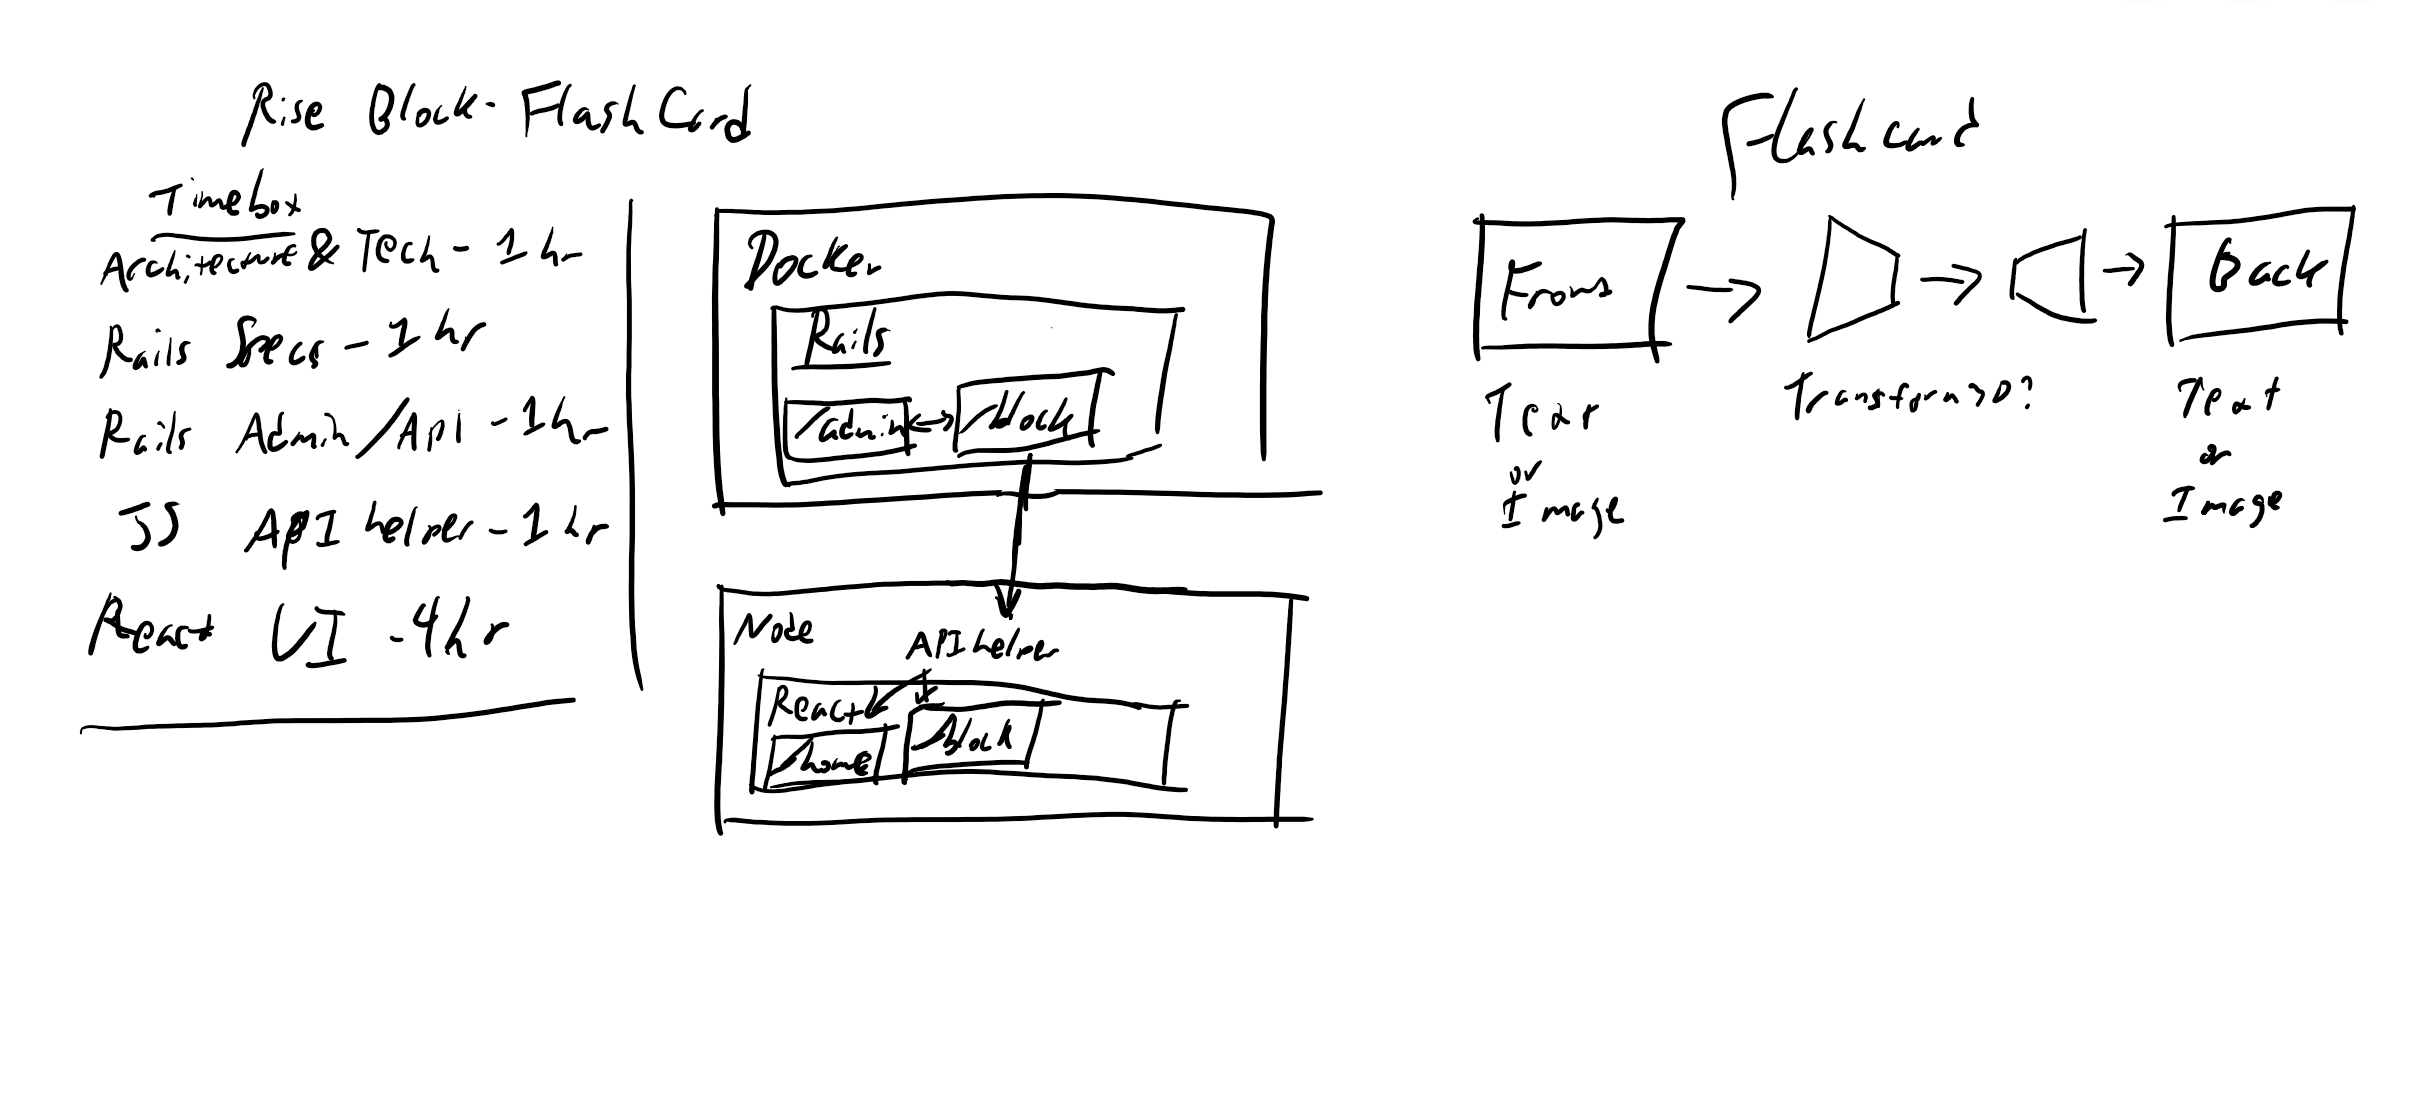 Rise Block - FlashCard
Timebox
Architecture & Tech - 1 hr
Rails Specs - 1 hr
Rails Admin/Api - 1 hr
JS API helper - 1 hr
React UI - 4hr
Docker
Rails
/admin
/block
Node
API helper
React
/home
/block
Flashcard
Front
Back
Text
or
Image
Transform 3D?
Text
or
Image